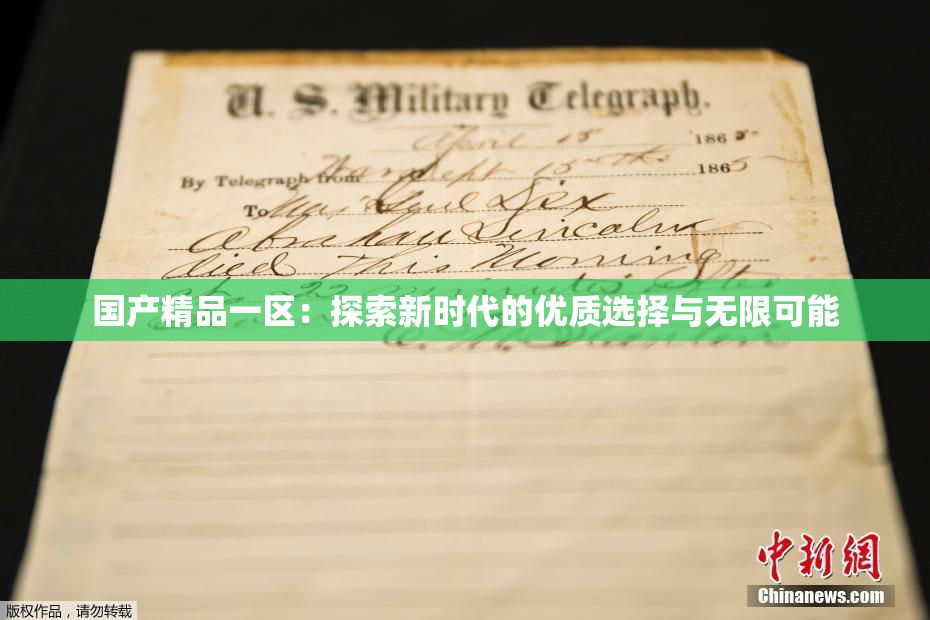 U. S. Military Telegraph.
April 15 1865
By Telegraph from War Dept 15th 1865
To Maj Genl Dix
Abraham Lincoln
died This Morning
22 minutes after
国产精品一区：探索新时代的优质选择与无限可能
中新网
Chinanews.com
版权作品，请勿转载